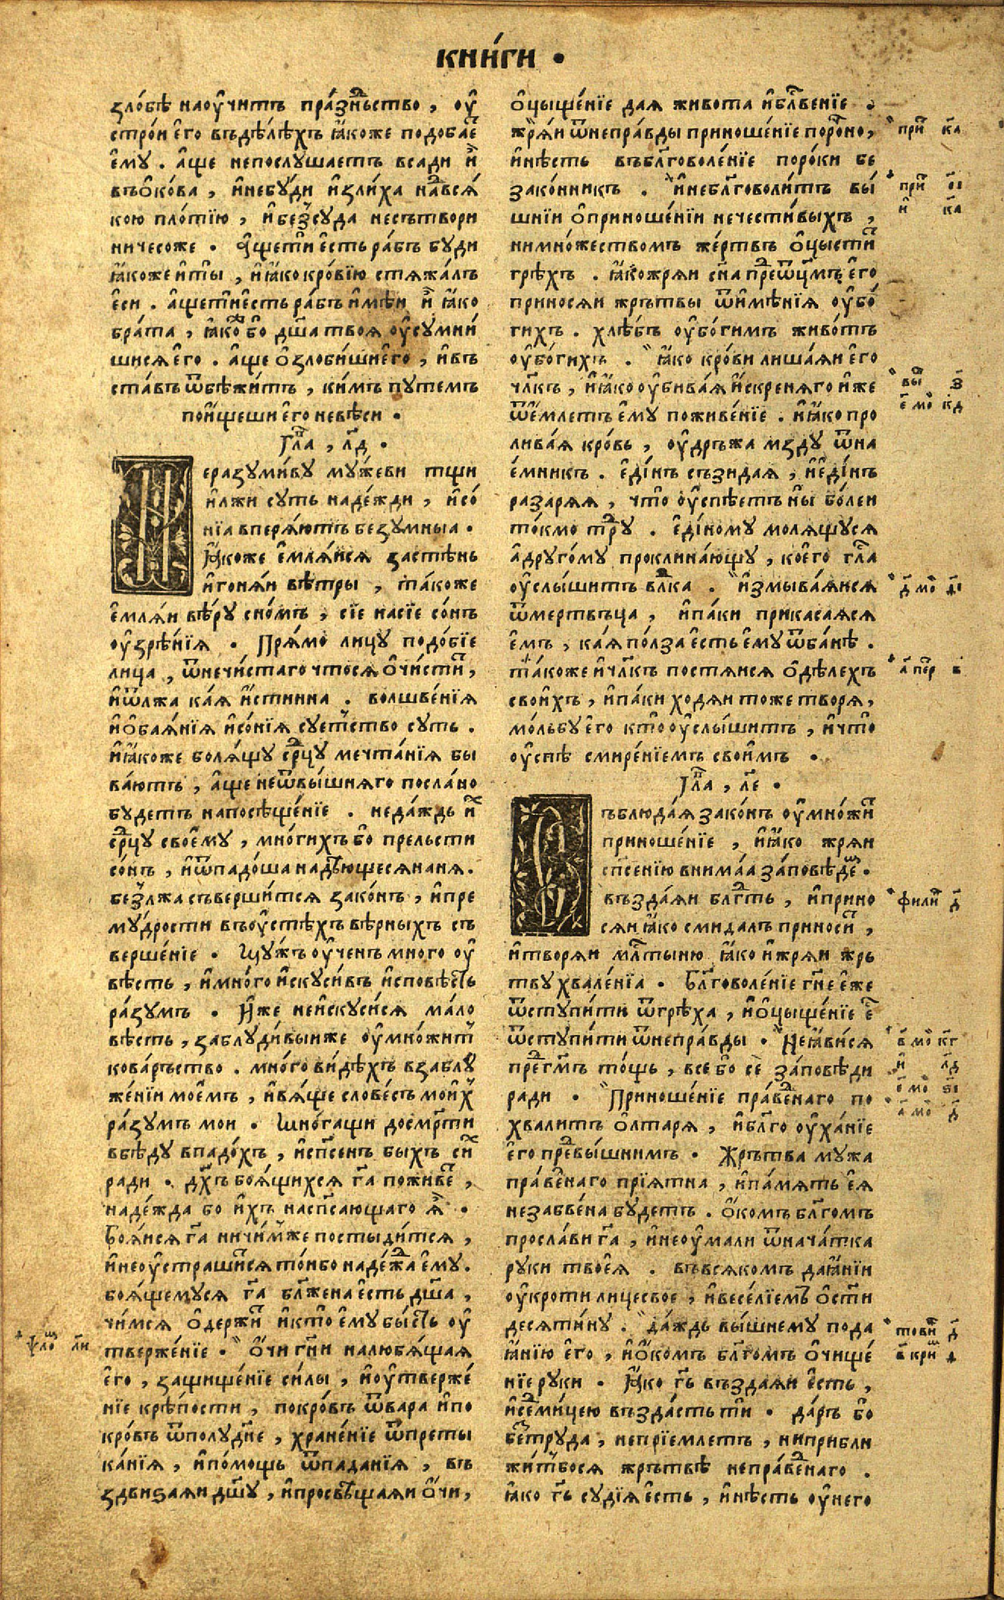 кни́ги ·
ѕло́бѣ наоу҆чи́тъ пра́зньство , оу҆
стро́и є҆го̀ въдѣ́лѣхъ ꙗ҆́коже подоба́є
є҆мꙋ̀ . а҆́ще непослꙋ́шаетъ всадѝ и҆̀
въѻ҆кѡ́ва , и҆небꙋ́ди и҆зли́ха навсѧ́
кою пло́тїю , и҆безсꙋда несътвори
ничесоже · а҆́щети є҆́сть ра́бъ бꙋди
ꙗ҆́коже и҆ты̀ , и҆ꙗ҆́ко кро́вїю стѧжа́лъ
є҆сѝ . а҆́щети є҆́сть ра́бъ и҆мѣ́и и҆̀ ꙗ҆́ко
бра́та , ꙗ҆́ко бо дш҃а твоѧ̀ оу҆сꙋмни́
шисѧ є҆го̀ . а҆́ще ѻ҆ѕло́биши є҆го̀ , и҆въ
ста́въ ѿбѣжи́тъ , ки́мъ пꙋте́мъ
пои́щеши є҆го̀ невѣ́си ·
Гла , лд ·
Неразꙋми́вꙋ мꙋ́жеви тщи
и҆лжи сꙋ́ть наде́жди , и҆со́
нїа вперѧ́ютъ безꙋмныа ·
Ꙗ҆́коже є҆млѧ́исѧ за стѣ́нь
и҆гонѧ́и вѣ́тры , та́коже
є҆млѧ́и вѣ́рꙋ сно́мъ , сїе насїе со́нъ
оу҆зрѣ́нїѧ · Прѧ́мо лицꙋ̀ подо́бїе
лица̀ , ѿнечи́стаго чтосѧ ѻ҆чи́сти ,
и҆ѿлжа ка́ѧ и҆́стинна . волшве́нїѧ
и҆ѻ҆баѧ́нїѧ и҆со́нїѧ сꙋе́тство сꙋ́ть .
и҆ꙗ҆́коже болѧ́щꙋ срцꙋ мечта́нїѧ бы
ва́ютъ , а҆́ще неѿвы́шнѧго посла́но
бꙋ́детъ напосѣще́нїе . неда́ждь и҆х
срцꙋ своемꙋ , мно́гихъ бо прельсти
со́нъ , и҆ѿпадо́ша надѣ́ющесѧ наня .
без лжа съверши́тсѧ зако́нъ , и҆пре
мꙋ́дрости въоу҆стѣ́хъ вѣ́рныхъ съ
верше́нїе · Мꙋ́жъ оу҆че́нъ мно́го оу҆
вѣ́сть , и҆мно́го и҆скꙋси́въ и҆сповѣ́сть
ра́зꙋмъ · И҆́же неи҆скꙋси́сѧ ма́ло
вѣ́сть , заблꙋди́выи же оу҆мно́житъ
кова́рьство . мно́го ви́дѣхъ взаблꙋ
же́нїи мое́мъ , и҆вѧ́ще слове́съ мои́х
ра́зꙋмъ мои · Мно́гащи досмр҃ти
вбѣ́дꙋ впадо́хъ , и҆сп҃сенъ бы́хъ си́х
ради · дх҃ъ боѧ́щихсѧ гд҃а пожи́ве ,
наде́жда бо и҆́хъ насп҃са́ющаго ѧ҆̀ ·
Боѧ́исѧ гд҃а ничимже постыди́тсѧ ,
и҆неоу҆страши́тсѧ то́ибо наде́жа є҆мꙋ̀.
боѧ́щемꙋсѧ гд҃а бл҃же́на є҆́сть дш҃а ,
чи́мсѧ ѻ҆держи́т и҆кто̀ є҆мꙋ̀ бы́сть оу҆
твержє́нїе · ѻ҆́чи гд҃ни налю́бѧщаѧ
є҆го̀ , защище́нїе си́лы , и҆оу҆твержє́
нїе крѣ́пости , покро́въ ѿва́ра и҆по
кро́въ ѿполꙋ́днїе , хране́нїе ѿпреты
ка́нїѧ , и҆по́мощь ѿпада́нїѧ , въ
здвиѕа́ѧи дш҃ꙋ , и҆просвѣща́ѧи ѻ҆́чи ,
фло ли
ѻ҆цыще́нїе даѧ живота и҆бл҃ве́нїе .
жрѧ́и ѿнепра́вды приноше́нїе поро́чно ,
и҆нѣ́сть въбл҃говоле́нїе поро́ки бе
зако́нникъ . и҆небл҃говоли́тъ вы́
шнїи ѻ҆приноше́нїи нечести́выхъ ,
нимно́жествомъ же́ртвъ ѻ҆цы́сти
грѣ́хъ . ꙗ҆́ко жрѧ́и сн҃а предѿцмъ є҆го̀
приносѧ́и жрътвы ѿимѣ́нїѧ оу҆бо́
гихъ . хлѣ́бъ оу҆бо́гимъ живо́тъ
оу҆бо́гихъ . ꙗ҆́ко кро́ви лиша́ѧи є҆го̀
члкъ , и҆ꙗ҆́ко оу҆бива́ѧ и҆скренѧго и҆же
ѿе́млетъ є҆мꙋ̀ поживе́нїе . и҆ꙗ҆́ко про
лива́ѧ кро́вь , оу҆дръжа мздꙋ ѿна
е́мникъ . є҆ди́нъ съзида́ѧ , и҆є҆ди́нъ
разарѧ́ѧ , что̀ оу҆спѣ́етъ и҆мы̀ бо́леи
то́кмо трꙋ . є҆ди́номꙋ молѧ́щꙋсѧ
а҆дрꙋго́мꙋ проклина́ющꙋ , кое́го гла
оу҆слы́шитъ вл҃ка . и҆змыва́ѧисѧ
ѿмертвъца , и҆па́ки прикаса́ѧсѧ
є҆мъ , ка́ѧ по́лза є҆́сть є҆мꙋ̀ ѿба́нѣ .
та́коже и҆члкъ постѧ́исѧ ѻ҆дѣ́лехъ
свои́хъ , и҆па́ки ходѧ́и то́же творѧ̀ ,
мольбꙋ̀ є҆го̀ кто̀ оу҆слы́шитъ , и҆что̀
оу҆спѣ̀ смире́нїемъ свои́мъ ·
Гла , ле ·
Съблюда́ѧ зако́нъ оу҆мно́жит
приноше́нїе , и҆ꙗ҆́ко жрѧ́и
сп҃се́нїю внима́а за́повѣдем ·
въздаѧ́и бл҃гть , и҆прино
сѧ́и ꙗ҆́ко смида́лъ приноси́т ,
и҆творѧ́и млтыню ꙗ҆́ко и҆жрѧ́и жрь
твꙋ хвале́нїа · Бл҃говоле́нїе гн҃е є҆́же
ѿстꙋпи́ти ѿгрѣха̀ , и҆ѻ҆цыще́нїе є҆́ж
ѿстꙋпи́ти ѿнепра́вды · Неꙗ҆ви́сѧ
пред гмъ то́щь , все бо се за́повѣди
ради · Приноше́нїе пра́ведна́го по
хвали́тъ ѻ҆лтарѧ̀ , и҆бл҃го оу҆ха́нїе
є҆го̀ предвы́шнимъ · Жрътва мꙋжа
пра́ведна́го прїѧ́тна , и҆па́мѧть є҆ѧ̀
незабве́на бꙋ́детъ . ѻ҆́комъ бл҃го́мъ
просла́ви гд҃а , и҆неоу҆мали ѿнача́тка
рꙋки твоеѧ̀ . въвсѧ́комъ даꙗ҆́нїи
оу҆кроти лицесвое , и҆весе́лїемъ ѻ҆ст҃и
десѧти́нꙋ . да́ждь вы́шнемꙋ пода
ꙗ҆́нїю є҆го̀ , и҆ѻ҆́комъ бл҃го́мъ ѻ҆чище́
нїе рꙋки · Ꙗ҆́ко гд҃ь въздаѧ́и є҆́сть ,
и҆седми́цею възда́сть ти · да́ръ бо
без трꙋда , непрїе́млетъ , ниприбли
жи́тбосѧ жрътвѣ непра́ведна́го .
ꙗ҆́ко гд҃ь сꙋдїѧ̀ є҆́сть , и҆нѣ́сть оу҆него
при ка
при оі
и ка
вы з
е мо кд
д мо ді
а пер в
фили д
в мо кг
и лд
е мо ѕі
а мо д
тови д
в кри д